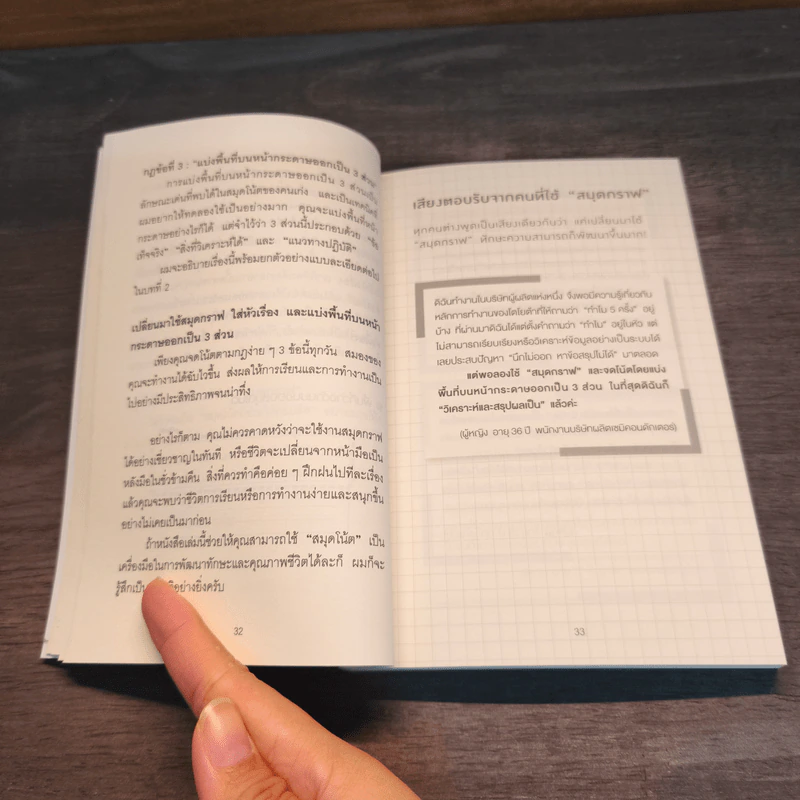 กฎข้อที่ 3 : “แบ่งพื้นที่บนหน้ากระดาษออกเป็น 3 ส่วน”
การแบ่งพื้นที่บนหน้ากระดาษออกเป็น 3 ส่วนเป็น
ลักษณะเด่นที่พบได้ในสมุดโน้ตของคนเก่ง และเป็นเทคนิคที่
ผมอยากให้ทดลองใช้เป็นอย่างมาก คุณจะแบ่งพื้นที่หน้า
กระดาษอย่างไรก็ได้ แต่จำไว้ว่า 3 ส่วนนี้ประกอบด้วย “ข้อ
เท็จจริง” “สิ่งที่วิเคราะห์ได้” และ “แนวทางปฏิบัติ”
ผมจะอธิบายเรื่องนี้พร้อมยกตัวอย่างแบบละเอียดต่อไป
ในบทที่ 2
เปลี่ยนมาใช้สมุดกราฟ ใส่หัวเรื่อง และแบ่งพื้นที่บนหน้า
กระดาษออกเป็น 3 ส่วน
เพียงคุณจดโน้ตตามกฎง่าย ๆ 3 ข้อนี้ทุกวัน สมองของ
คุณจะทำงานได้ฉับไวขึ้น ส่งผลให้การเรียนและการทำงานเป็น
ไปอย่างมีประสิทธิภาพจนน่าทึ่ง
อย่างไรก็ตาม คุณไม่ควรคาดหวังว่าจะใช้งานสมุดกราฟ
ได้อย่างเชี่ยวชาญในทันที หรือชีวิตจะเปลี่ยนจากหน้ามือเป็น
หลังมือในชั่วข้ามคืน สิ่งที่ควรทำคือค่อย ๆ ฝึกฝนไปทีละเรื่อง
แล้วคุณจะพบว่าชีวิตการเรียนหรือการทำงานง่ายและสนุกขึ้น
อย่างไม่เคยเป็นมาก่อน
ถ้าหนังสือเล่มนี้ช่วยให้คุณสามารถใช้ “สมุดโน้ต” เป็น
เครื่องมือในการพัฒนาทักษะและคุณภาพชีวิตได้ละก็ ผมก็จะ
รู้สึกเป็น อย่างยิ่งครับ
32
เสียงตอบรับจากคนที่ใช้ “สมุดกราฟ”
ทุกคนต่างพูดเป็นเสียงเดียวกันว่า แค่เปลี่ยนมาใช้
“สมุดกราฟ” ทักษะความสามารถก็พัฒนาขึ้นมาก!
ดิฉันทำงานในบริษัทผู้ผลิตแห่งหนึ่ง จึงพอมีความรู้เกี่ยวกับ
หลักการทำงานของโตโยต้าที่ให้ถามว่า “ทำไม 5 ครั้ง” อยู่
บ้าง ที่ผ่านมาดิฉันได้แต่ตั้งคำถามว่า “ทำไม” อยู่ในหัว แต่
ไม่สามารถเรียบเรียงหรือวิเคราะห์ข้อมูลอย่างเป็นระบบได้
เลยประสบปัญหา “นึกไม่ออก หาข้อสรุปไม่ได้” มาตลอด
แต่พอลองใช้ “สมุดกราฟ” และจดโน้ตโดยแบ่ง
พื้นที่บนหน้ากระดาษออกเป็น 3 ส่วน ในที่สุดดิฉันก็
“วิเคราะห์และสรุปผลเป็น” แล้วค่ะ
(ผู้หญิง อายุ 36 ปี พนักงานบริษัทผลิตเซมิคอนดักเตอร์)
33